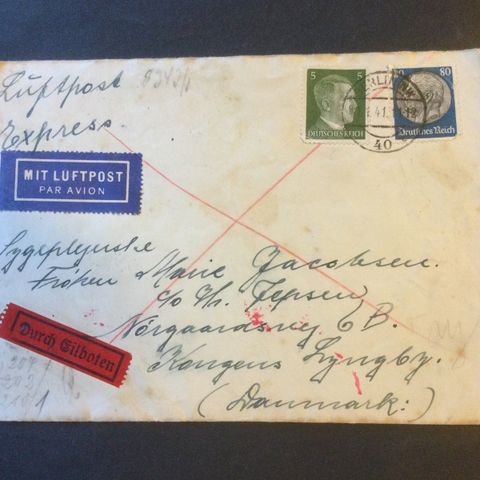 Luftpost
Express
5 5
DEUTSCHES REICH
80
Deutsches Reich
BERLIN NW
41
40
MIT LUFTPOST
PAR AVION
Sygeplejerske
Frøken Marie Jacobsen.
c/o Th. Jepsen
Nørgaardsvej 6 B.
Kongens Lyngby.
(Danmark.)
Durch Eilboten